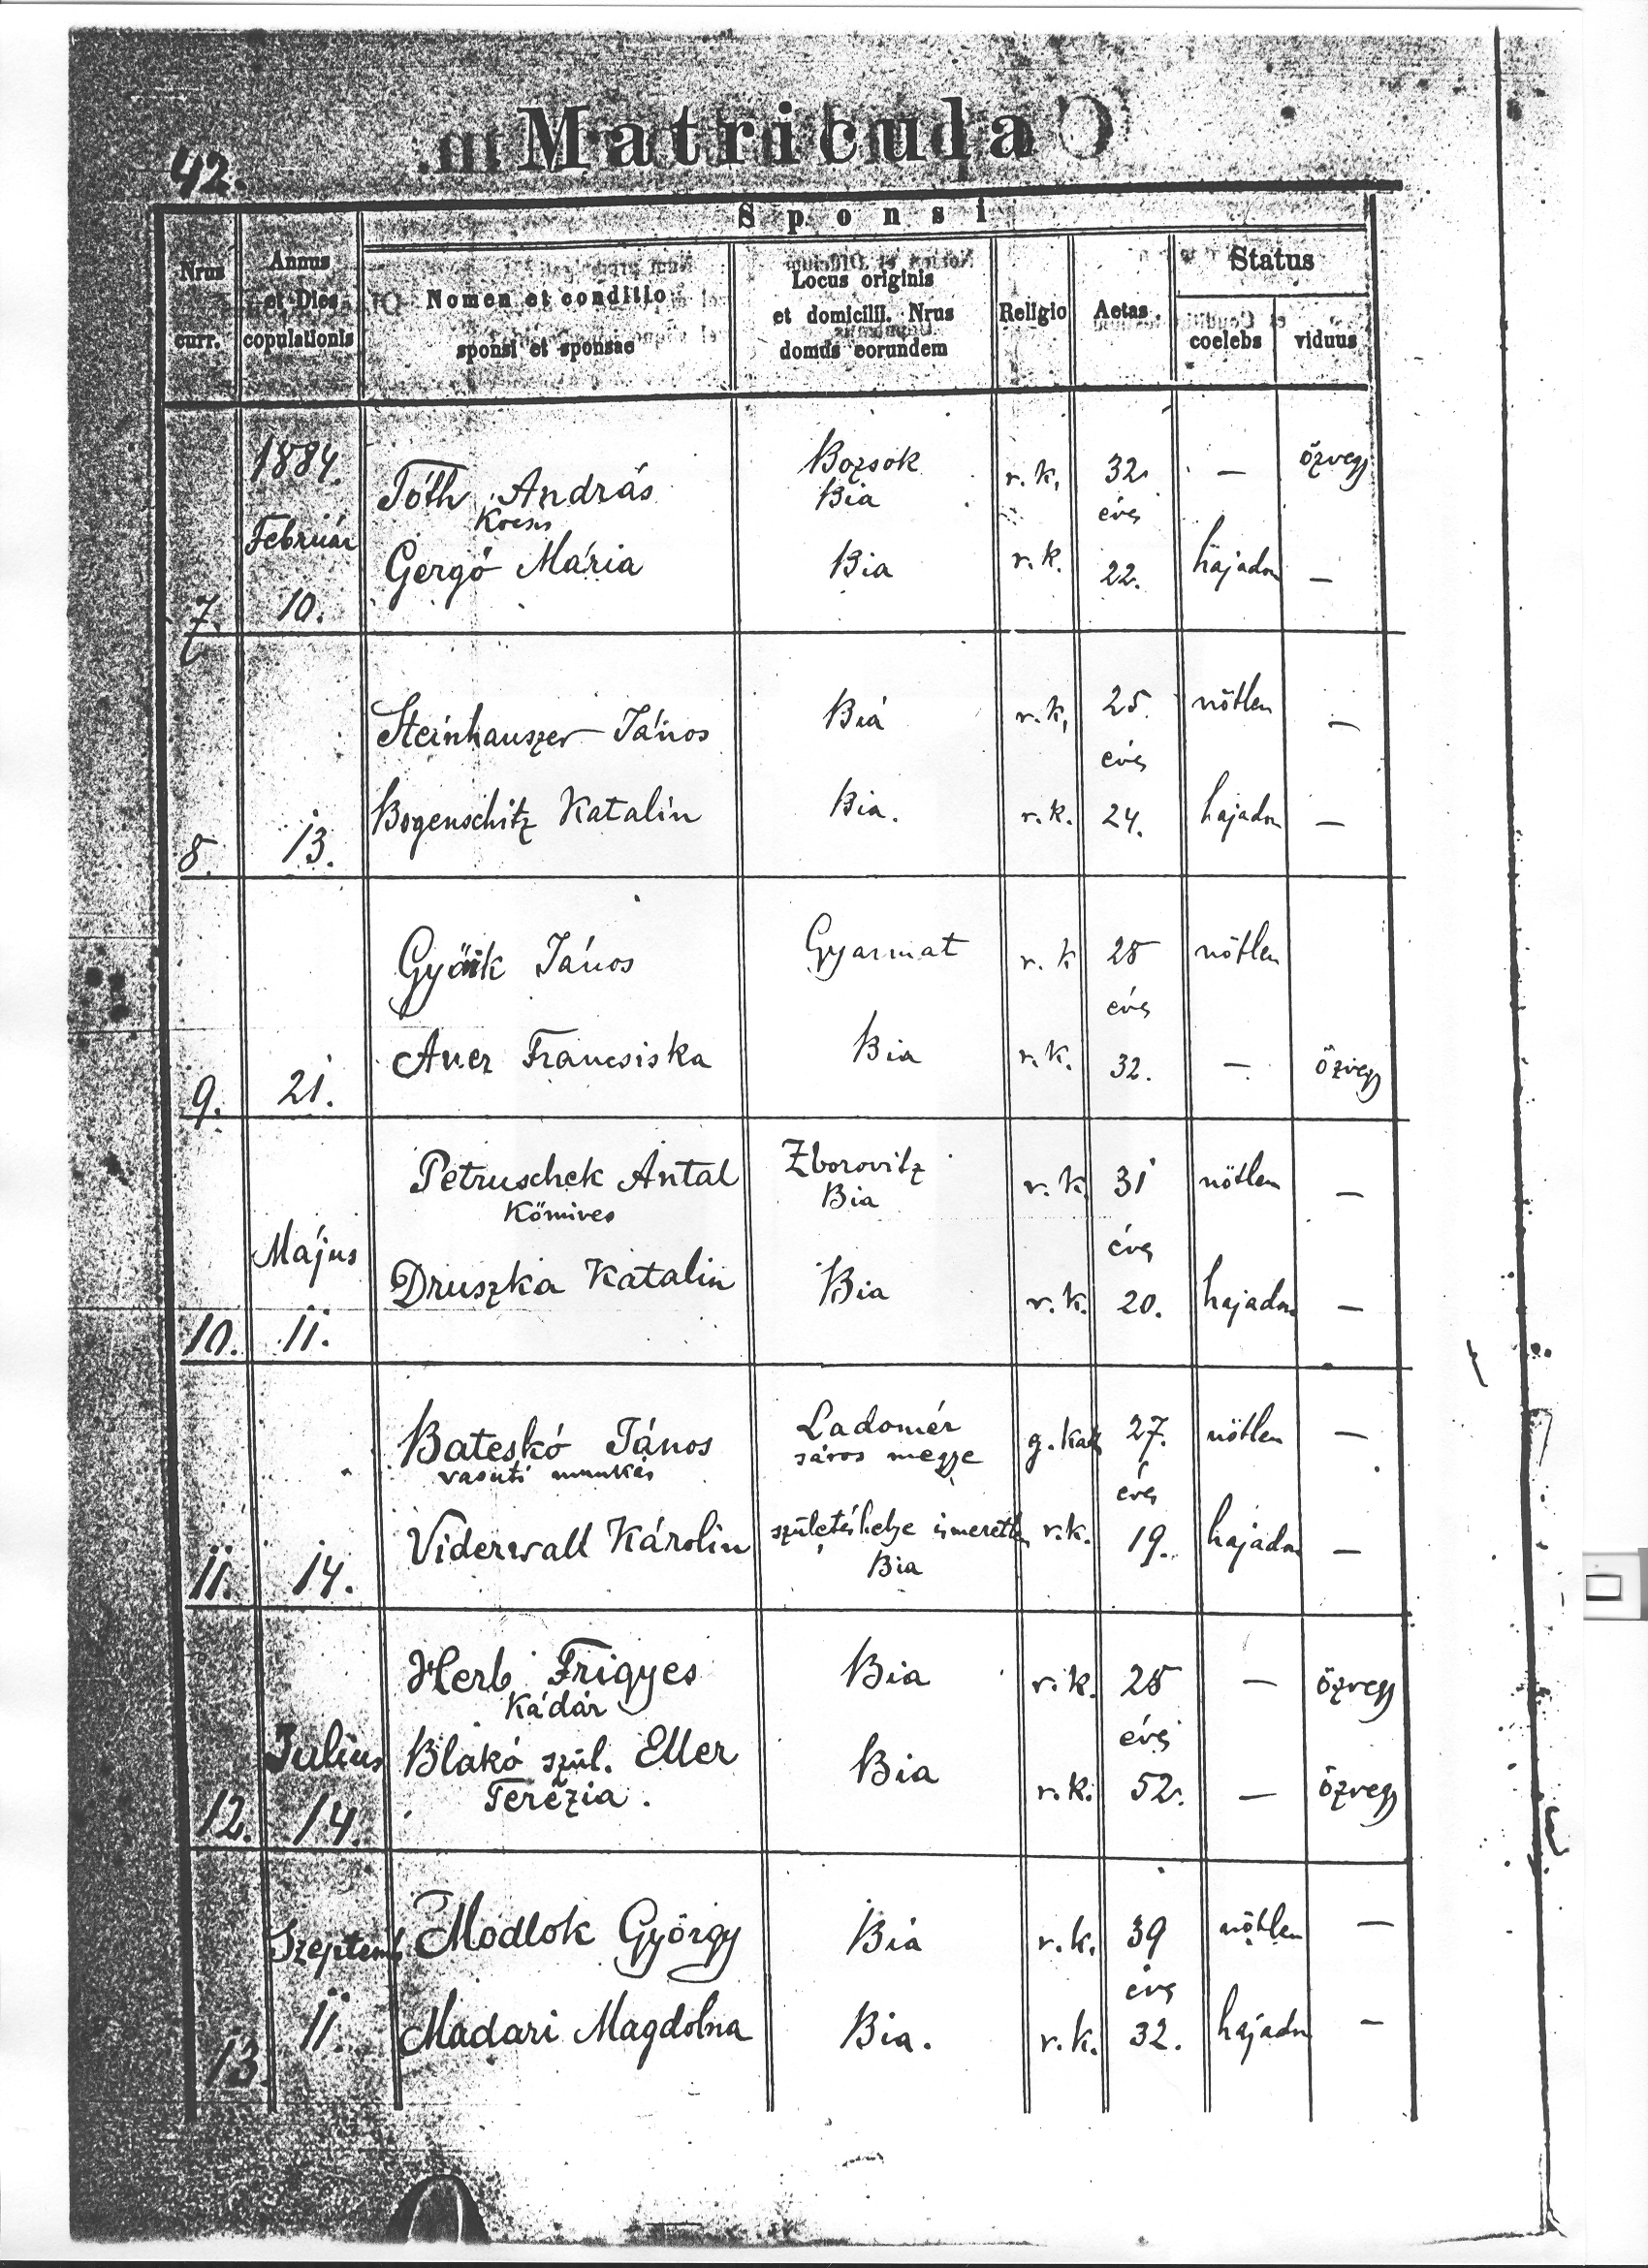 42.
Matricula
Sponsi
Nrus curr.
Annus et Dies copulationis
Nomen et conditio sponsi et sponsae
Locus originis et domicilii. Nrus domus eorundem
Religio
Aetas.
Status
coelebs
viduus
1884.
Tóth András Bozsok r. k. 32. — özvegy
Kocsis Bia éves
Február
Gergó Mária Bia r. k. 22. hajadon —
7. 10.
Steinhauszer János Bia r. k. 25. nötlen —
éves
Bogenschitz Katalin Bia. r. k. 24. hajadon —
8. 13.
János Gyarmat r. k nötlen
éves
Auer Francsiska Bia r. k. 32. — özvegy
9. 21.
Petruschek Antal Zborovitz r. k. 31 nötlen —
Kömives Bia
Május éves
Druszka Katalin Bia r. k. 20. hajadon —
10. 11.
Bateskó János Ladomér g. kath 27. nötlen —
vasuti munkás sáros megye
éves
Viderwall Károlin születéshelye ismeretlen r. k. 19. hajadon —
Bia
11. 14.
Herb Frigyes Bia r. k. — özvegy
Kádár
Julius éves
Blakó szül. Eller Bia r. k. 52. — özvegy
Terézia.
12. 14.
Modlok György Bia r. k. 39 nötlen —
Szeptemb.
éves
11. Madari Magdolna Bia. r. k. 32. hajadon —
13.